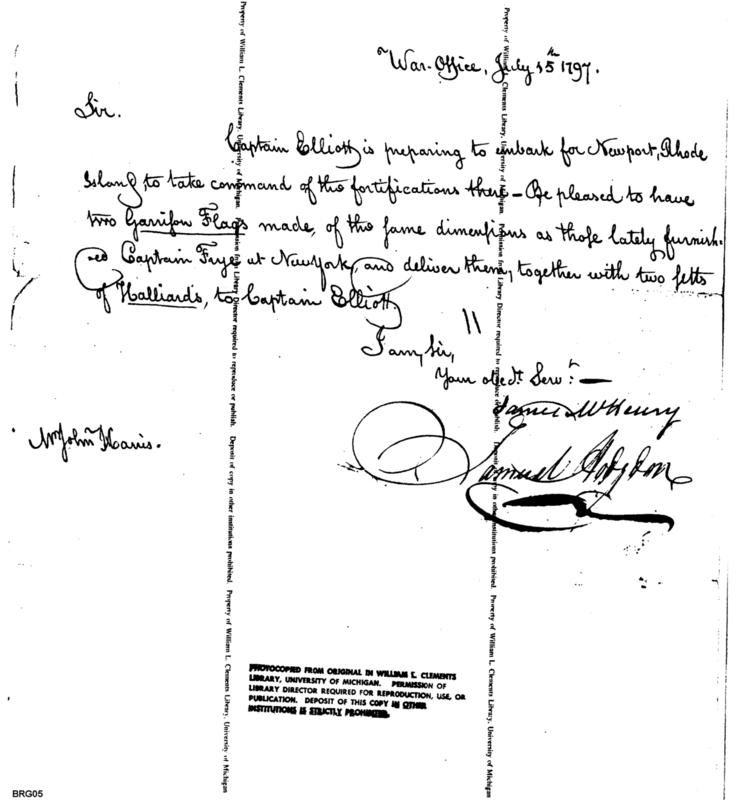 War-Office, July 15th 1797.
Sir.
Captain Elliott is preparing to embark for Newport, Rhode
Island to take command of the fortifications there – Be pleased to have
two Garrison Flags made, of the same dimensions as those lately furnish-
ed Captain Frye at New York, and deliver them, together with two setts
of Halliards, to Captain Elliott.
I am, Sir,
Your obedt. Servt.
James McHenry
Samuel Hodgdon
Mr John Harris.
Property of William L. Clements Library, University of Michigan. Permission from Library Director required to reproduce or publish. Deposit of copy in other institutions prohibited. Property of William L. Clements Library, University of Michigan
Property of William L. Clements Library, University of Michigan. Permission from Library Director required to reproduce or publish. Deposit of copy in other institutions prohibited. Property of William L. Clements Library, University of Michigan
PHOTOCOPIED FROM ORIGINAL IN WILLIAM L. CLEMENTS
LIBRARY, UNIVERSITY OF MICHIGAN. PERMISSION OF
LIBRARY DIRECTOR REQUIRED FOR REPRODUCTION, USE, OR
PUBLICATION. DEPOSIT OF THIS COPY IN OTHER
INSTITUTIONS IS STRICTLY PROHIBITED.
BRG05